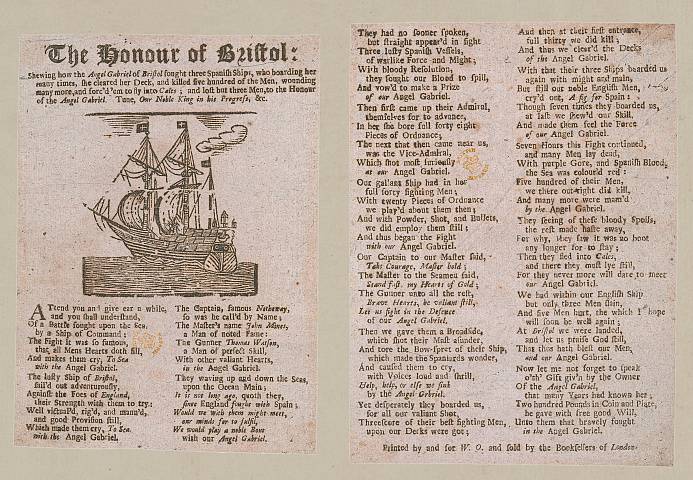 The Honour of Bristol:
Shewing how the Angel Gabriel of Bristol fought three Spanish Ships, who boarding her
many times, she cleared her Deck, and killed five hundred of the Men, wounding
many more, and forc'd 'em to fly into Cales; and lost but three Men, to the Honour
of the Angel Gabriel. Tune, Our Noble King in his Progress, &c.
ATtend you and give ear a while,
and you shall understand,
Of a Battle fought upon the Sea,
by a Ship of Command;
The Fight it was so famous,
that all Mens Hearts doth fill,
And makes them cry, To Sea
with the Angel Gabriel.
The lusty Ship of Bristol,
sail'd out adventurously,
Against the Foes of England,
their Strength with them to try:
Well victual'd, rig'd, and mann'd,
and good Provision still,
Which made them cry, To Sea
with the Angel Gabriel.
The Captain, famous Netheway,
so was he call'd by Name;
The Master's name John Mines,
a Man of noted Fame:
The Gunner Thomas Watson,
a Man of perfect Skill,
With other valiant Hearts,
in the Angel Gabriel.
They waving up and down the Seas,
upon the Ocean Main;
It is not long ago, quoth they,
since England fought with Spain:
Would we with them might meet,
our minds for to fulfil,
We would play a noble Bout
with our Angel Gabriel.
They had no sooner spoken,
but straight appear'd in sight
Three lusty Spanish Vessels,
of warlike Force and Might;
With bloody Resolution,
they sought our Blood to spill,
And vow'd to make a Prize
of our Angel Gabriel.
Then first came up their Admiral,
themselves for to advance,
In her she bore full forty eight
Pieces of Ordnance,
The next that then came near us,
was the Vice-Admiral,
Which shot most furiously
at our Angel Gabriel.
Our gallant Ship had in her
full forty fighting Men;
With twenty Pieces of Ordnance
we play'd about them then;
And with Powder, Shot, and Bullets,
we did employ them still;
And thus began the Fight
with our Angel Gabriel.
Our Captain to our Master said,
Take Courage, Master bold;
The Master to the Seamen said,
Stand fast, my Hearts of Gold;
The Gunner unto all the rest,
Brave Hearts, be valiant still,
Let us fight in the Defence
of our Angel Gabriel.
Then we gave them a Broadside,
which shot their Mast asunder,
And tore the Bow-spret of their Ship,
which made the Spaniards wonder,
And caused them to cry,
with Voices loud and shrill,
Help, help, or else we sink
by the Angel Gabriel.
Yet desperately they boarded us,
for all our valiant Shot,
Threescore of their best fighting Men,
upon our Decks were got;
And then at their first entrance,
full thirty we did kill;
And thus we clear'd the Decks
of the Angel Gabriel.
With that their three Ships boarded us
again with might and main,
But still our noble English Men,
cry'd out, A fig for Spain:
Though seven times they boarded us,
at last we shew'd our Skill,
And made them feel the Force
of our Angel Gabriel.
Seven Hours this Fight continued,
and many Men lay dead,
With purple Gore, and Spanish Blood,
the Sea was colour'd red:
Five hundred of their Men,
we there outright did kill,
And many more were maim'd
by the Angel Gabriel.
They seeing of these bloody Spoils,
the rest made haste away,
For why, they saw it was no boot
any longer for to stay;
Then they fled into Cales,
and there they must lye still,
For they never more will dare to meet
our Angel Gabriel.
We had within our English Ship
but only three Men slain,
And five Men hurt, the which I hope
will soon be well again;
At Bristol we were landed,
and let us praise God still,
That thus hath blest our Men,
and our Angel Gabriel.
Now let me not forget to speak
o'th' Gift giv'n by the Owner
Of the Angel Gabriel,
that many Years had known her;
Two hundred Pounds in Coin and Plate,
he gave with free good Will,
Unto them that bravely fought
in the Angel Gabriel.
Printed by and for W. O. and sold by the Booksellers of London.